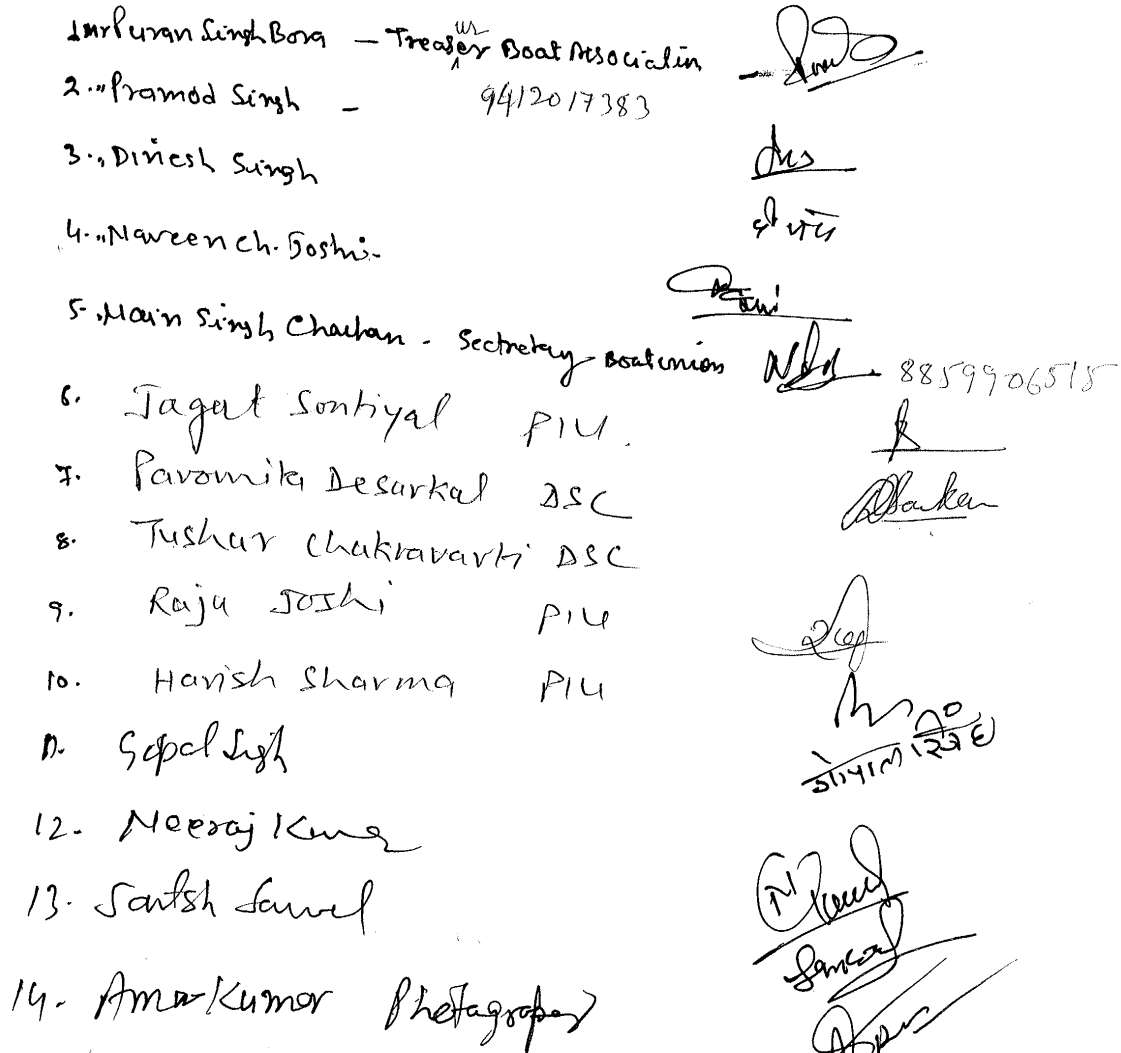 1 Mr Puran Singh Bora - Treasurer Boat Associatin -
2. " Pramod Singh - 9412017383
3. " Dinesh Singh
4. " Naveen ch. Joshi -
5. " Main Singh Chauhan - Sectretay Boat union 8859906515
6. Jagat Sontiyal PIU.
7. Paromita Desarkal DSC
8. Tushar Chakravarti DSC
9. Raju Joshi PIU
10. Harish Sharma PIU
11. Gopal Sigh
गोपाल सिंह
12. Neeraj Kumar
13. Santsh Sanwal
14. Amar Kumar Photagrapher